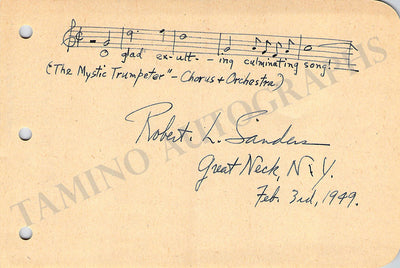 O glad ex-ult-ing culminating song!
("The Mystic Trumpeter" - Chorus & Orchestra)
Robert L. Sanders
Great Neck, N.Y.
Feb. 3rd, 1949.
TAMINO AUTOGRAPHS